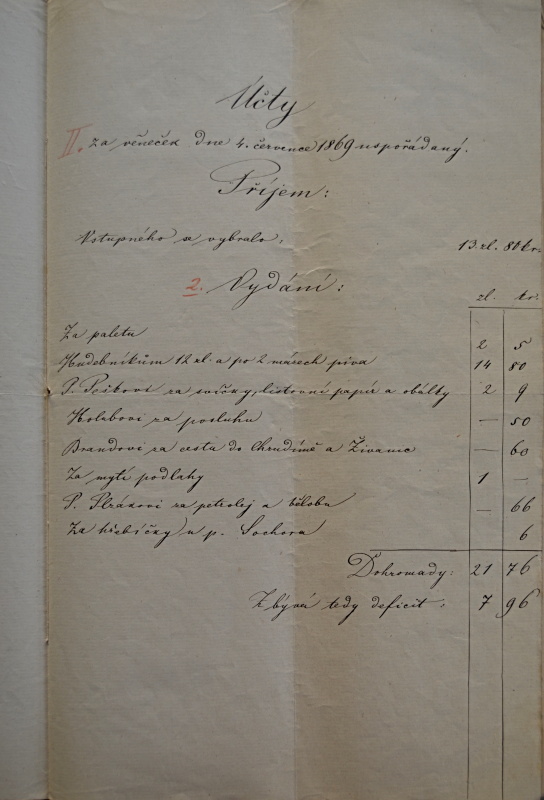 Účty
II. za věneček dne 4. července 1869 uspořádaný.
Příjem:
Vstupného se vybralo, 13 zl. 80 kr.
2. Vydání:
zl. kr.
Za paletu 2 5
Hudebníkům 12 zl. a po 2 mázech piva 14 80
P. Peškovi za svíčky, listovní papír a obálky 2 9
Holubovi za posluhu — 50
Brandovi za cestu do Chrudimě a Živanic — 60
Za mytí podlahy 1 —
P. za petrolej a bělobu — 66
Za hřebíčky u p. Sochora 6
Dohromady: 21 76
Zbývá tedy deficit: 7 96